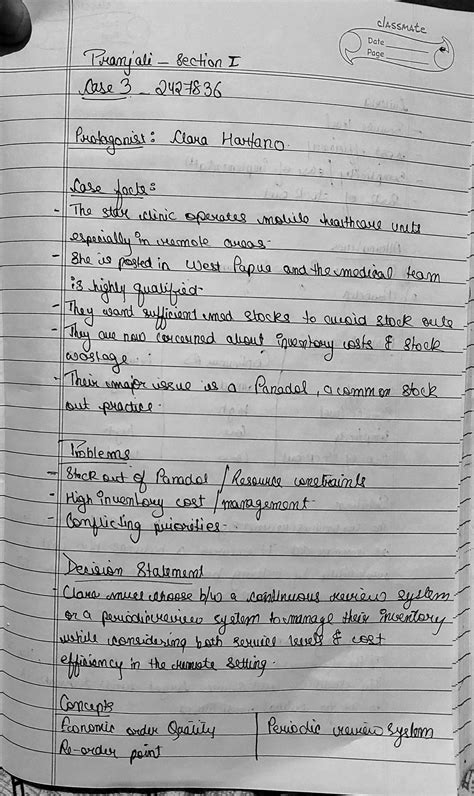 classmate
Date
Page
Pranjali - Section I
Case 3 - 2427836
Protagonist: Clara Hartano.
Case facts:
- The star clinic operates mobile healthcare units
especially in remote areas.
- She is posted in West Papua and the medical team
is highly qualified.
- They want sufficient med stocks to avoid stock outs.
- They are now concerned about inventory costs & stock
wastage.
- Their major issue is a Panadol, a common stock
out practice.
Problems
- Stock out of Panadol / Resource constraints
- High inventory cost / management.
- Conflicting priorities.
Decision Statement
- Clara must choose b/w a continuous review system
or a periodic review system to manage their inventory
while considering both service levels & cost
efficiency in the remote setting.
Concepts
Economic order Quality
Periodic review system
Re-order point